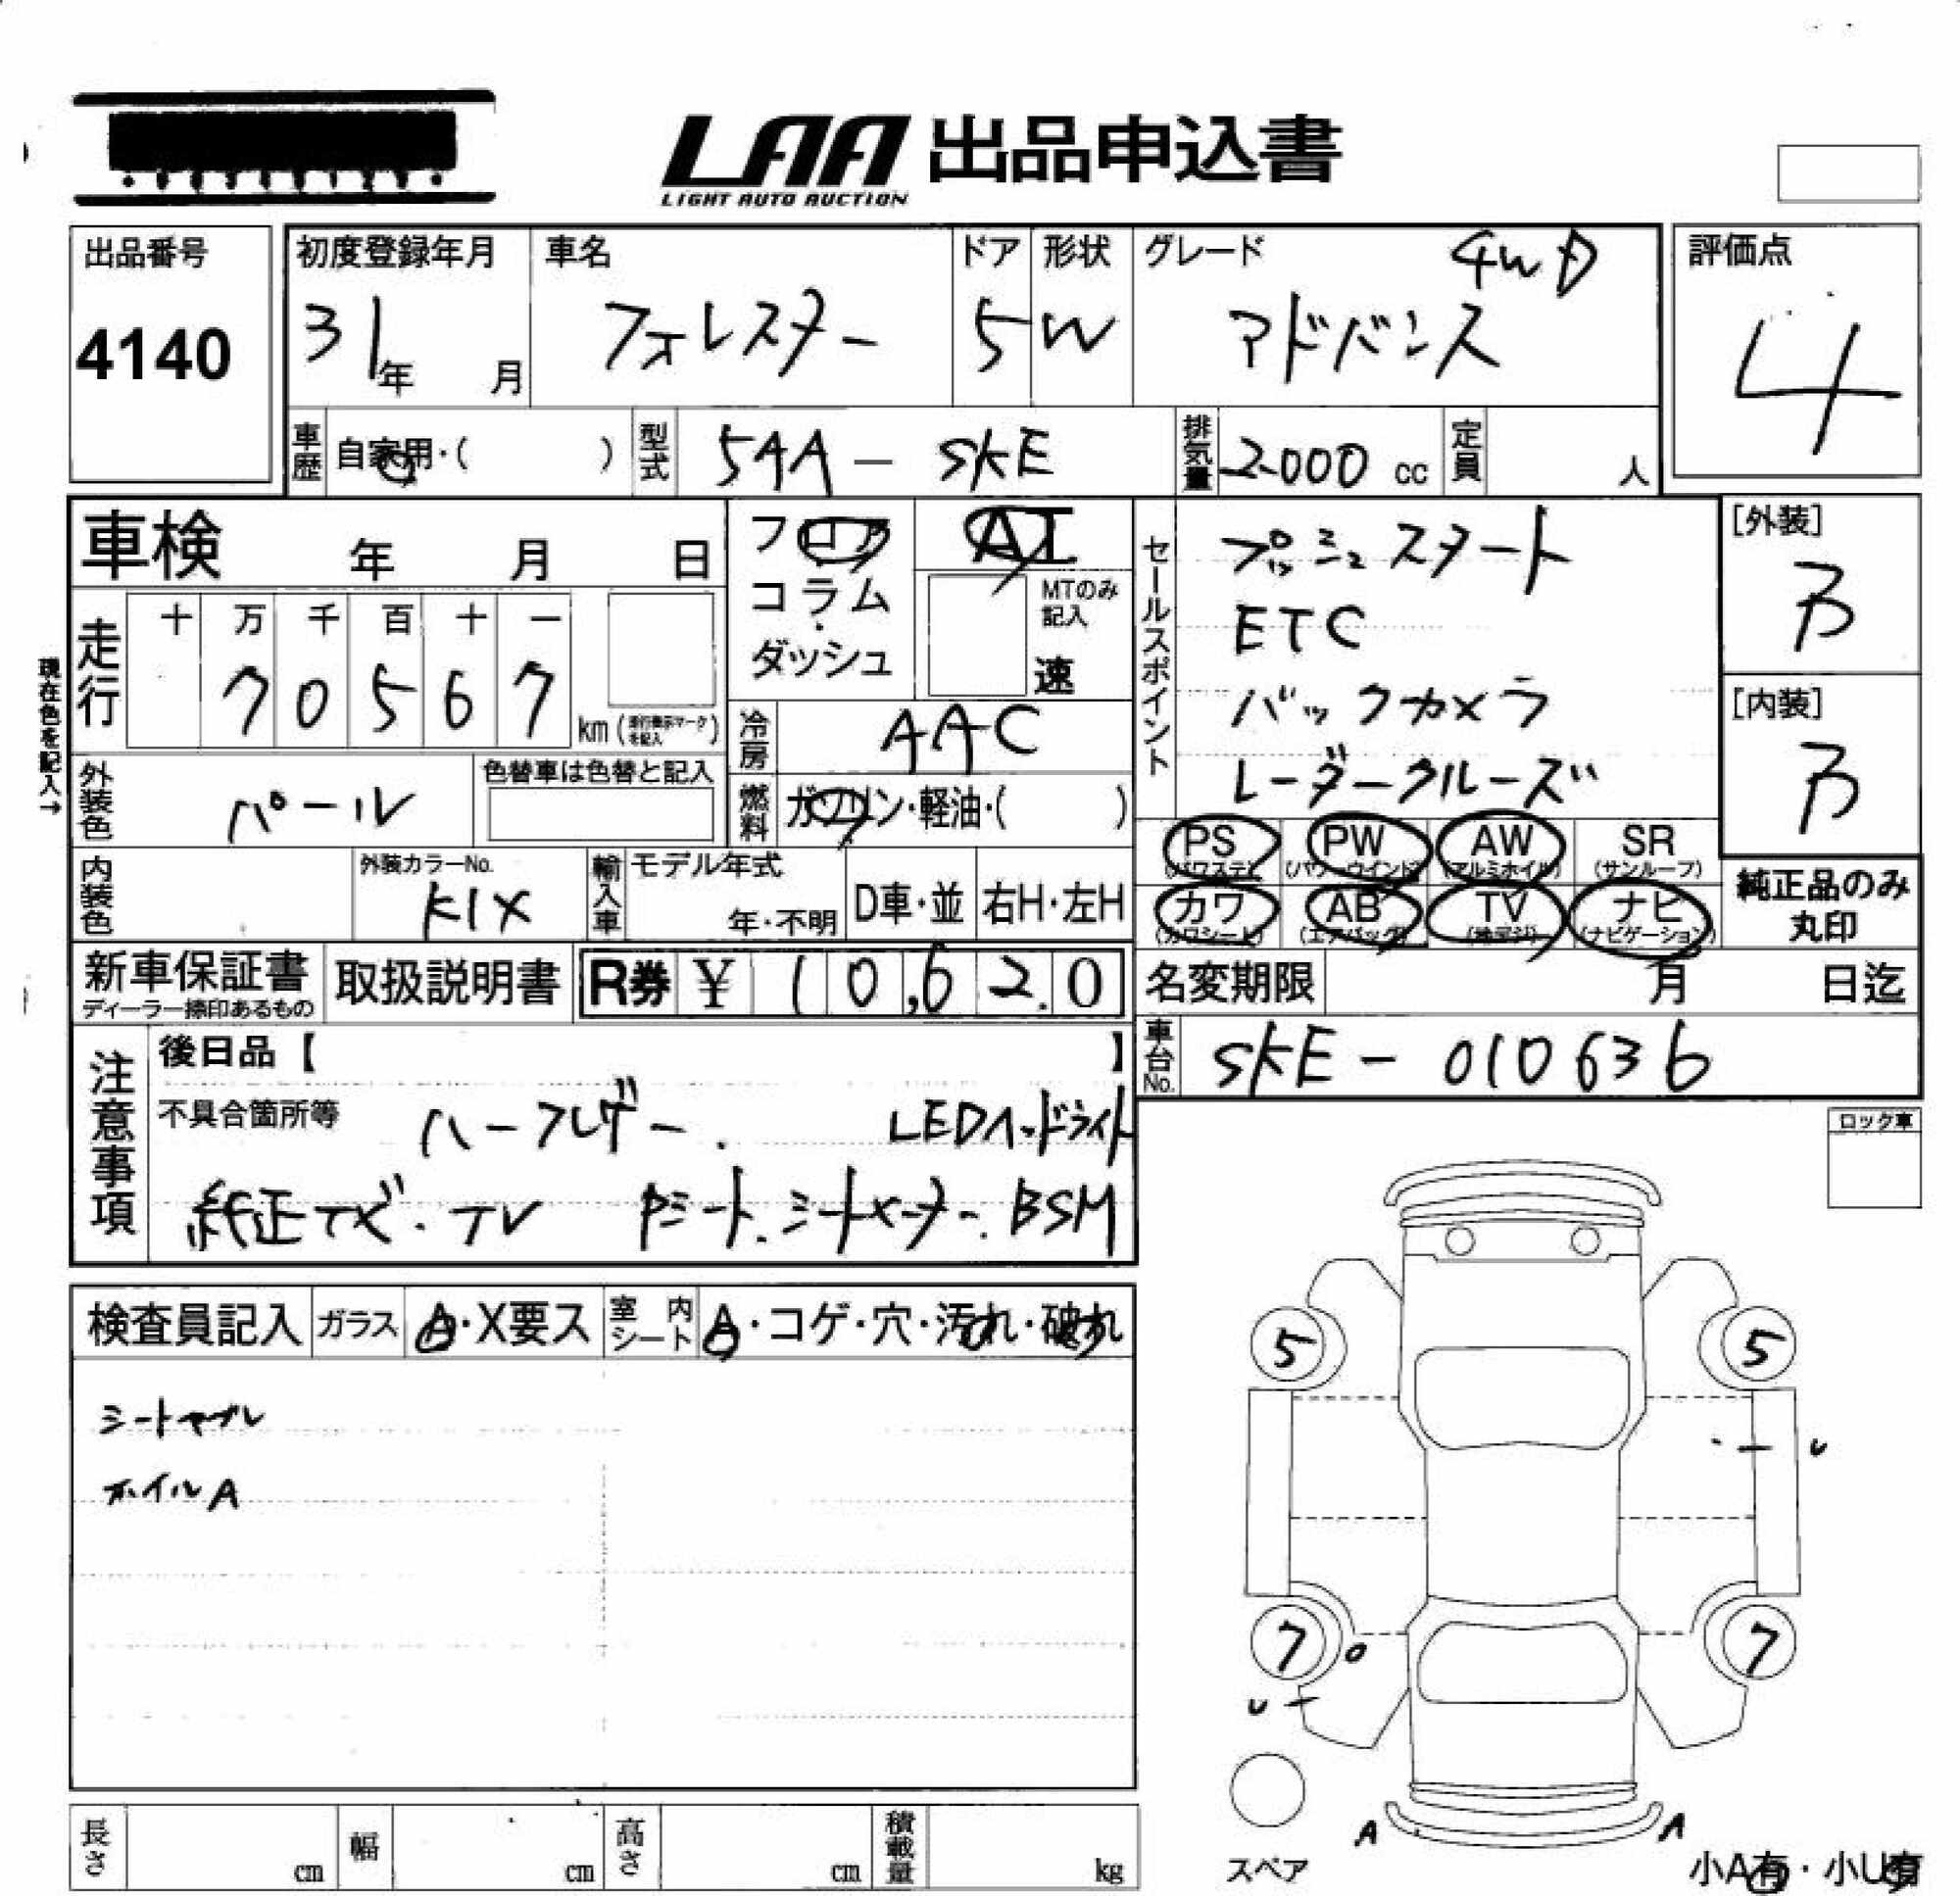 LAA 出品申込書
LIGHT AUTO AUCTION
出品番号
4140
初度登録年月
31年 月
車名
フォレスター
ドア
5
形状
W
グレード 4WD
アドバンス
評価点
4
車歴 自家用・( )
型式 5AA - SKE
排気量 2000 cc
定員 人
車検 年 月 日
フロア
コラム
ダッシュ
AT
MTのみ記入
速
走行
十 万 千 百 十 一
7 0 5 6 7 km (走行表示マークを記入)
現在色を記入→
冷房 AAC
外装色 パール
色替車は色替と記入
燃料 ガソリン・軽油・( )
内装色
外装カラーNo.
K1X
輸入車 モデル年式
年・不明
D車・並 右H・左H
セールスポイント
プッシュスタート
ETC
バックカメラ
レーダークルーズ
[外装]
B
[内装]
B
PS (パワステ) PW (パワーウインド) AW (アルミホイル) SR (サンルーフ)
カワ (カワシート) AB (エアバッグ) TV (地デジ) ナビ (ナビゲーション)
純正品のみ丸印
新車保証書
ディーラー捺印あるもの
取扱説明書
R券 ¥ 10,620
名変期限 月 日迄
車台No. SKE - 010636
注意事項
後日品【 】
不具合箇所等 ハーフレザー. LEDヘッドライト
純正ナビ・TV Pシート.シートヒーター.BSM
ロック車
検査員記入 ガラス A・X要ス 室内シート A・コゲ・穴・汚れ・破れ
シートヤブレ
ホイルA
5 5
U
7 7
U
A A
スペア
小A有・小U有
長さ cm 幅 cm 高さ cm 積載量 kg